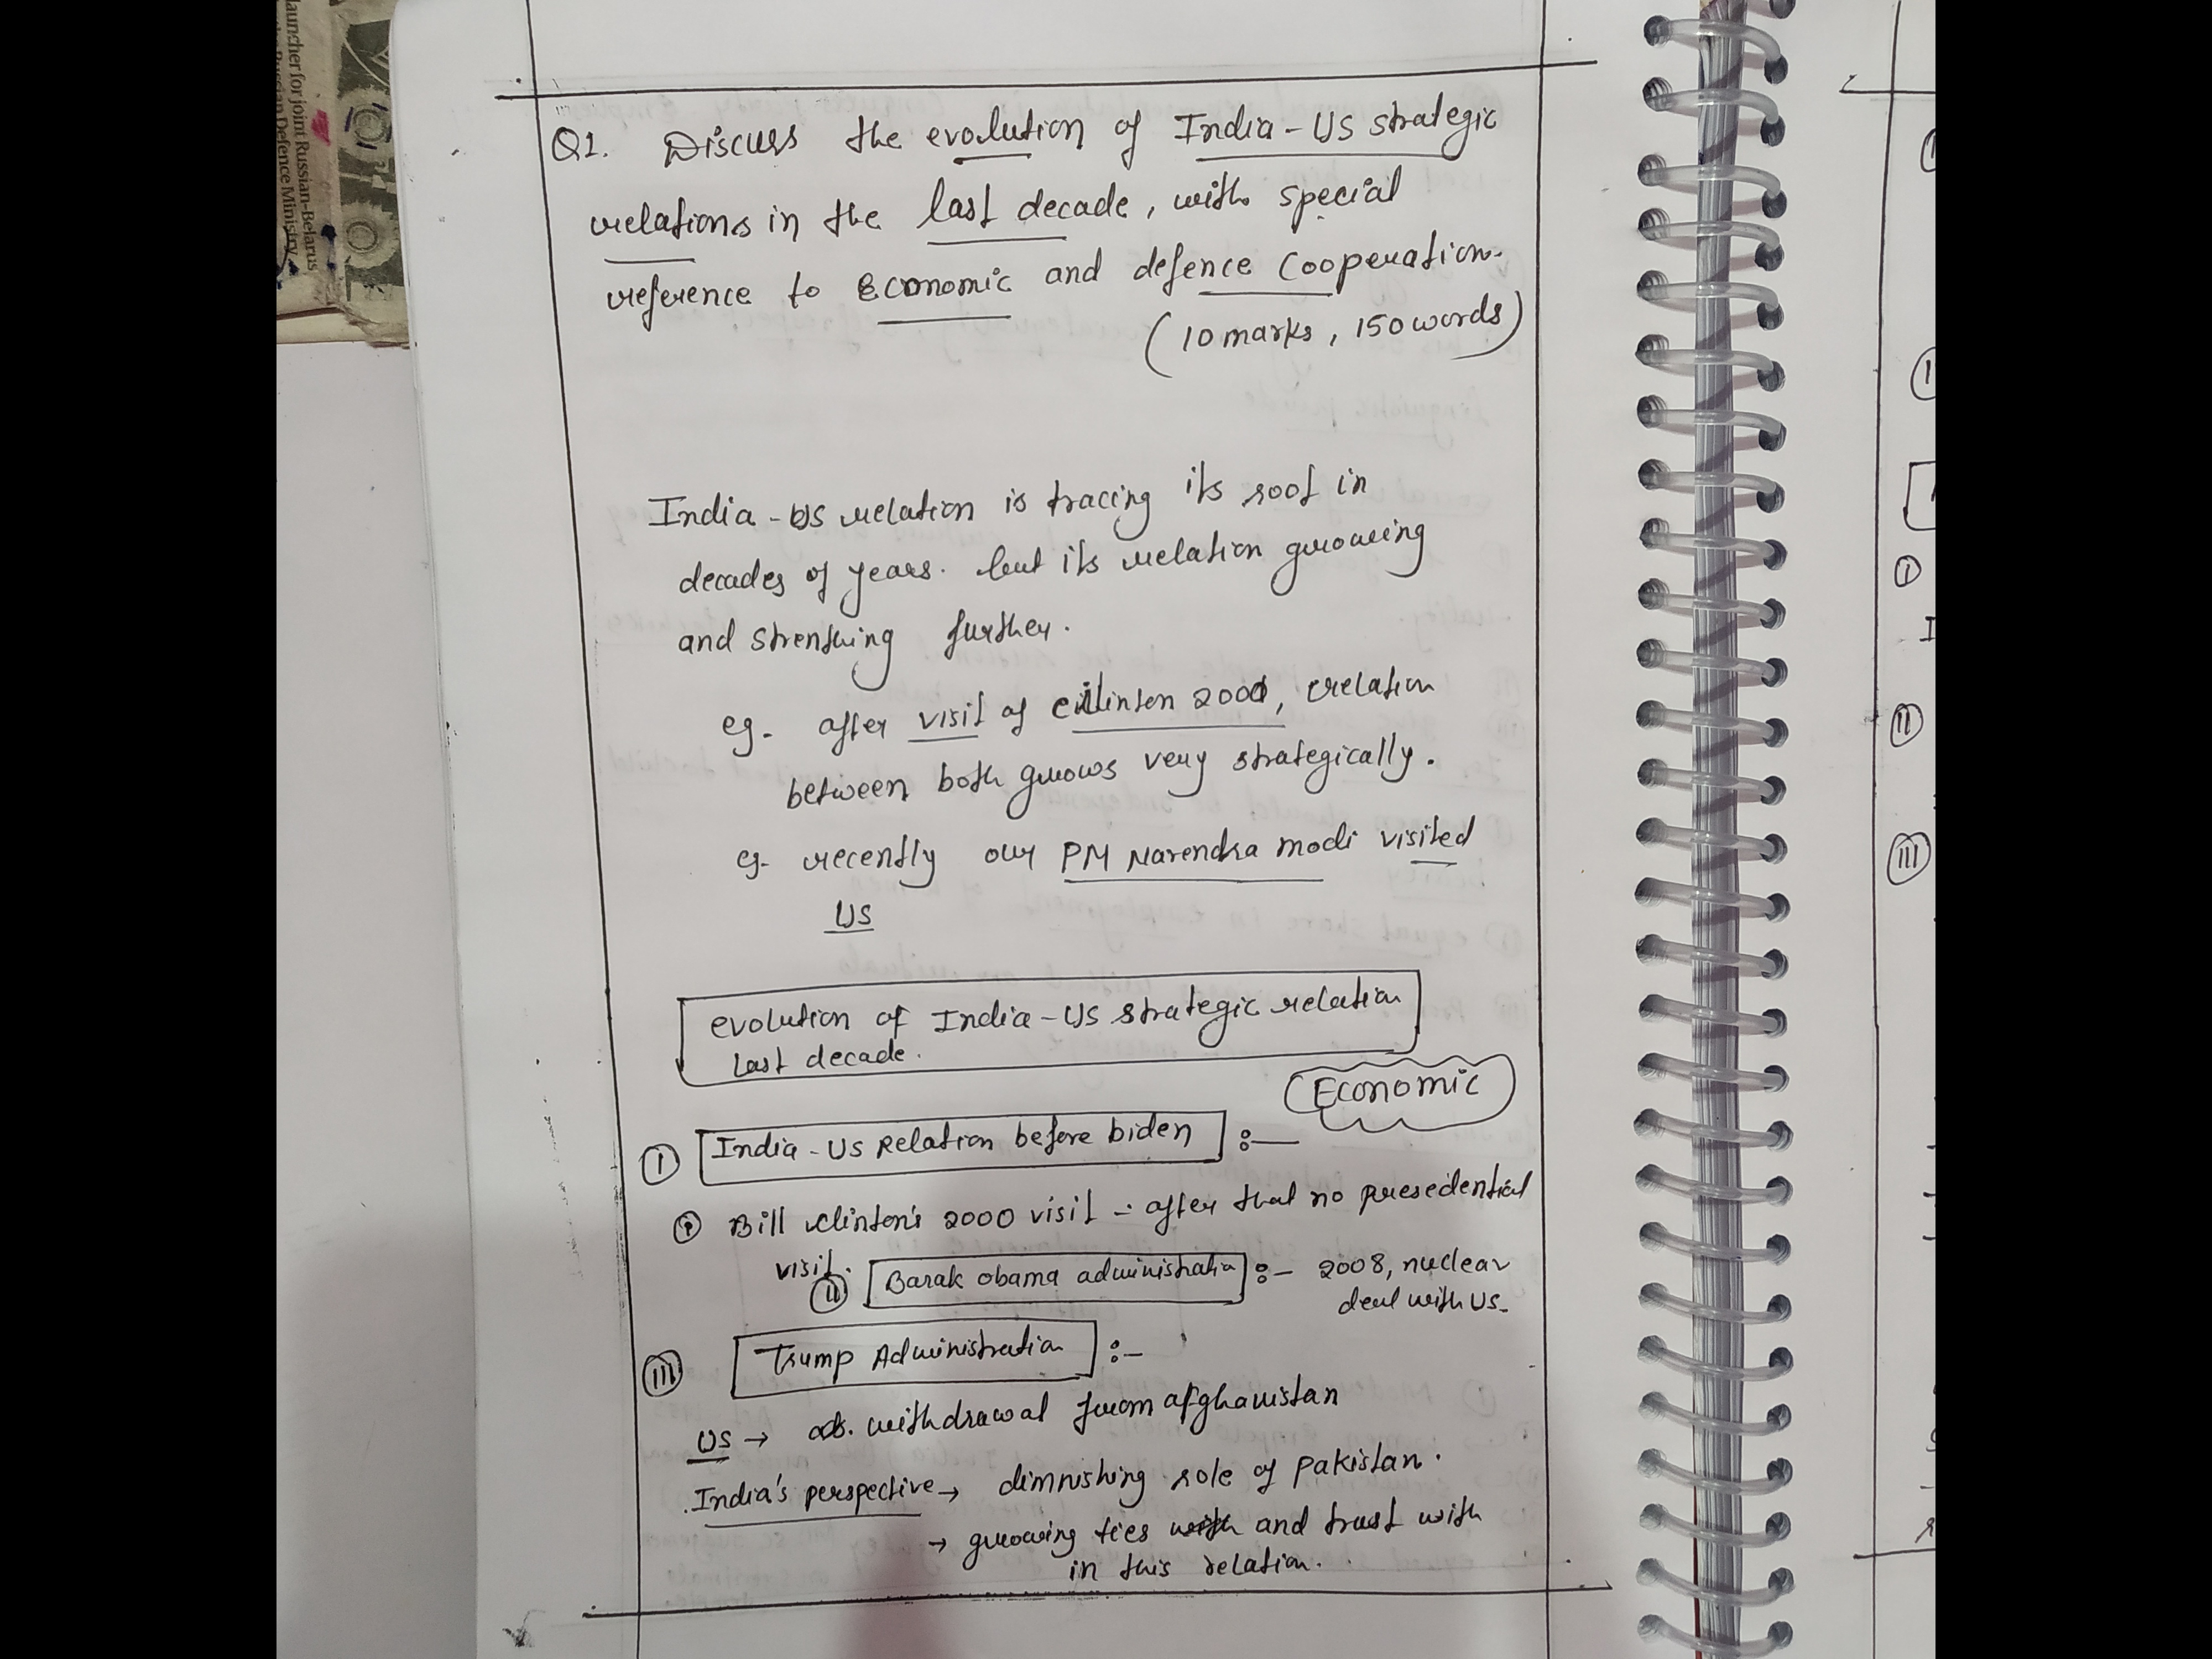 launcher for joint Russian-Belarus
Russian Defence Ministry
Q1. Discuss the evolution of India-US strategic
relations in the last decade, with special
reference to Economic and defence cooperation.
(10 marks, 150 words)
India-US relation is tracing its root in
decades of years. but its relation growing
and strenthing further.
eg. after visit of Clinton 2000, relation
between both grows very strategically.
eg- recently our PM Narendra modi visited
US
evolution of India-US strategic relation
last decade.
Economic
I India-US Relation before biden :—
Bill Clinton's 2000 visit - after that no presedential
visit.
II Barak obama administratia :- 2008, nuclear
deal with US.
III Trump Administration :-
US → withdrawal from afghanistan
India's perspective → diminshing role of pakistan.
→ growing ties with and trust with
in this relation.
I
II
III